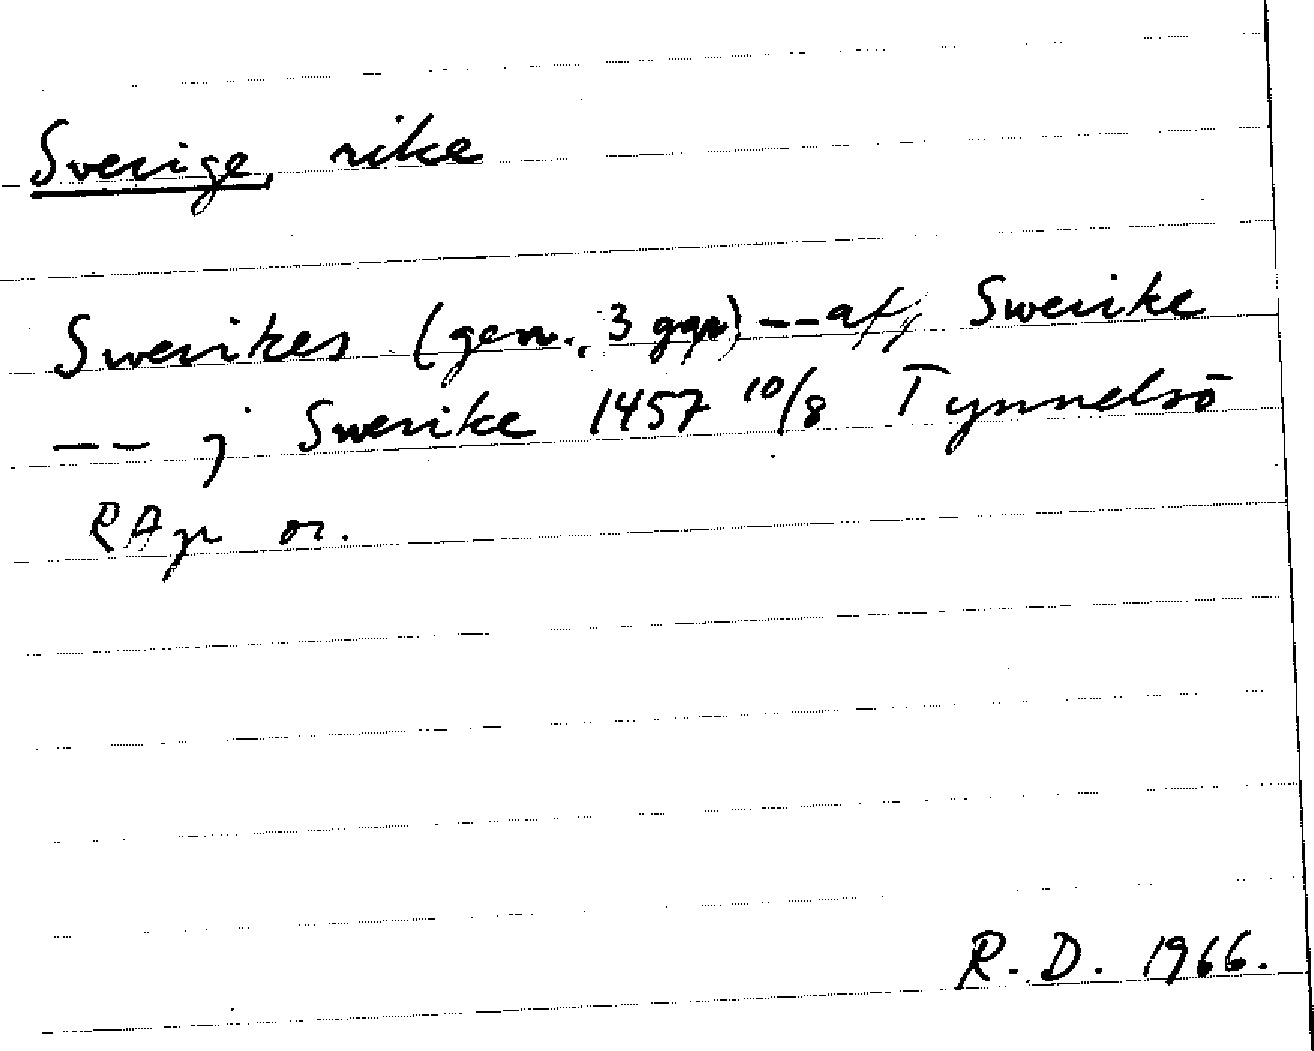 Sverige, rike
Swerikes (gen., 3 ggr) -- aff Swerike
-- j Swerike 1457 10/8 Tynnelsö
RAp or.
R.D. 1966.